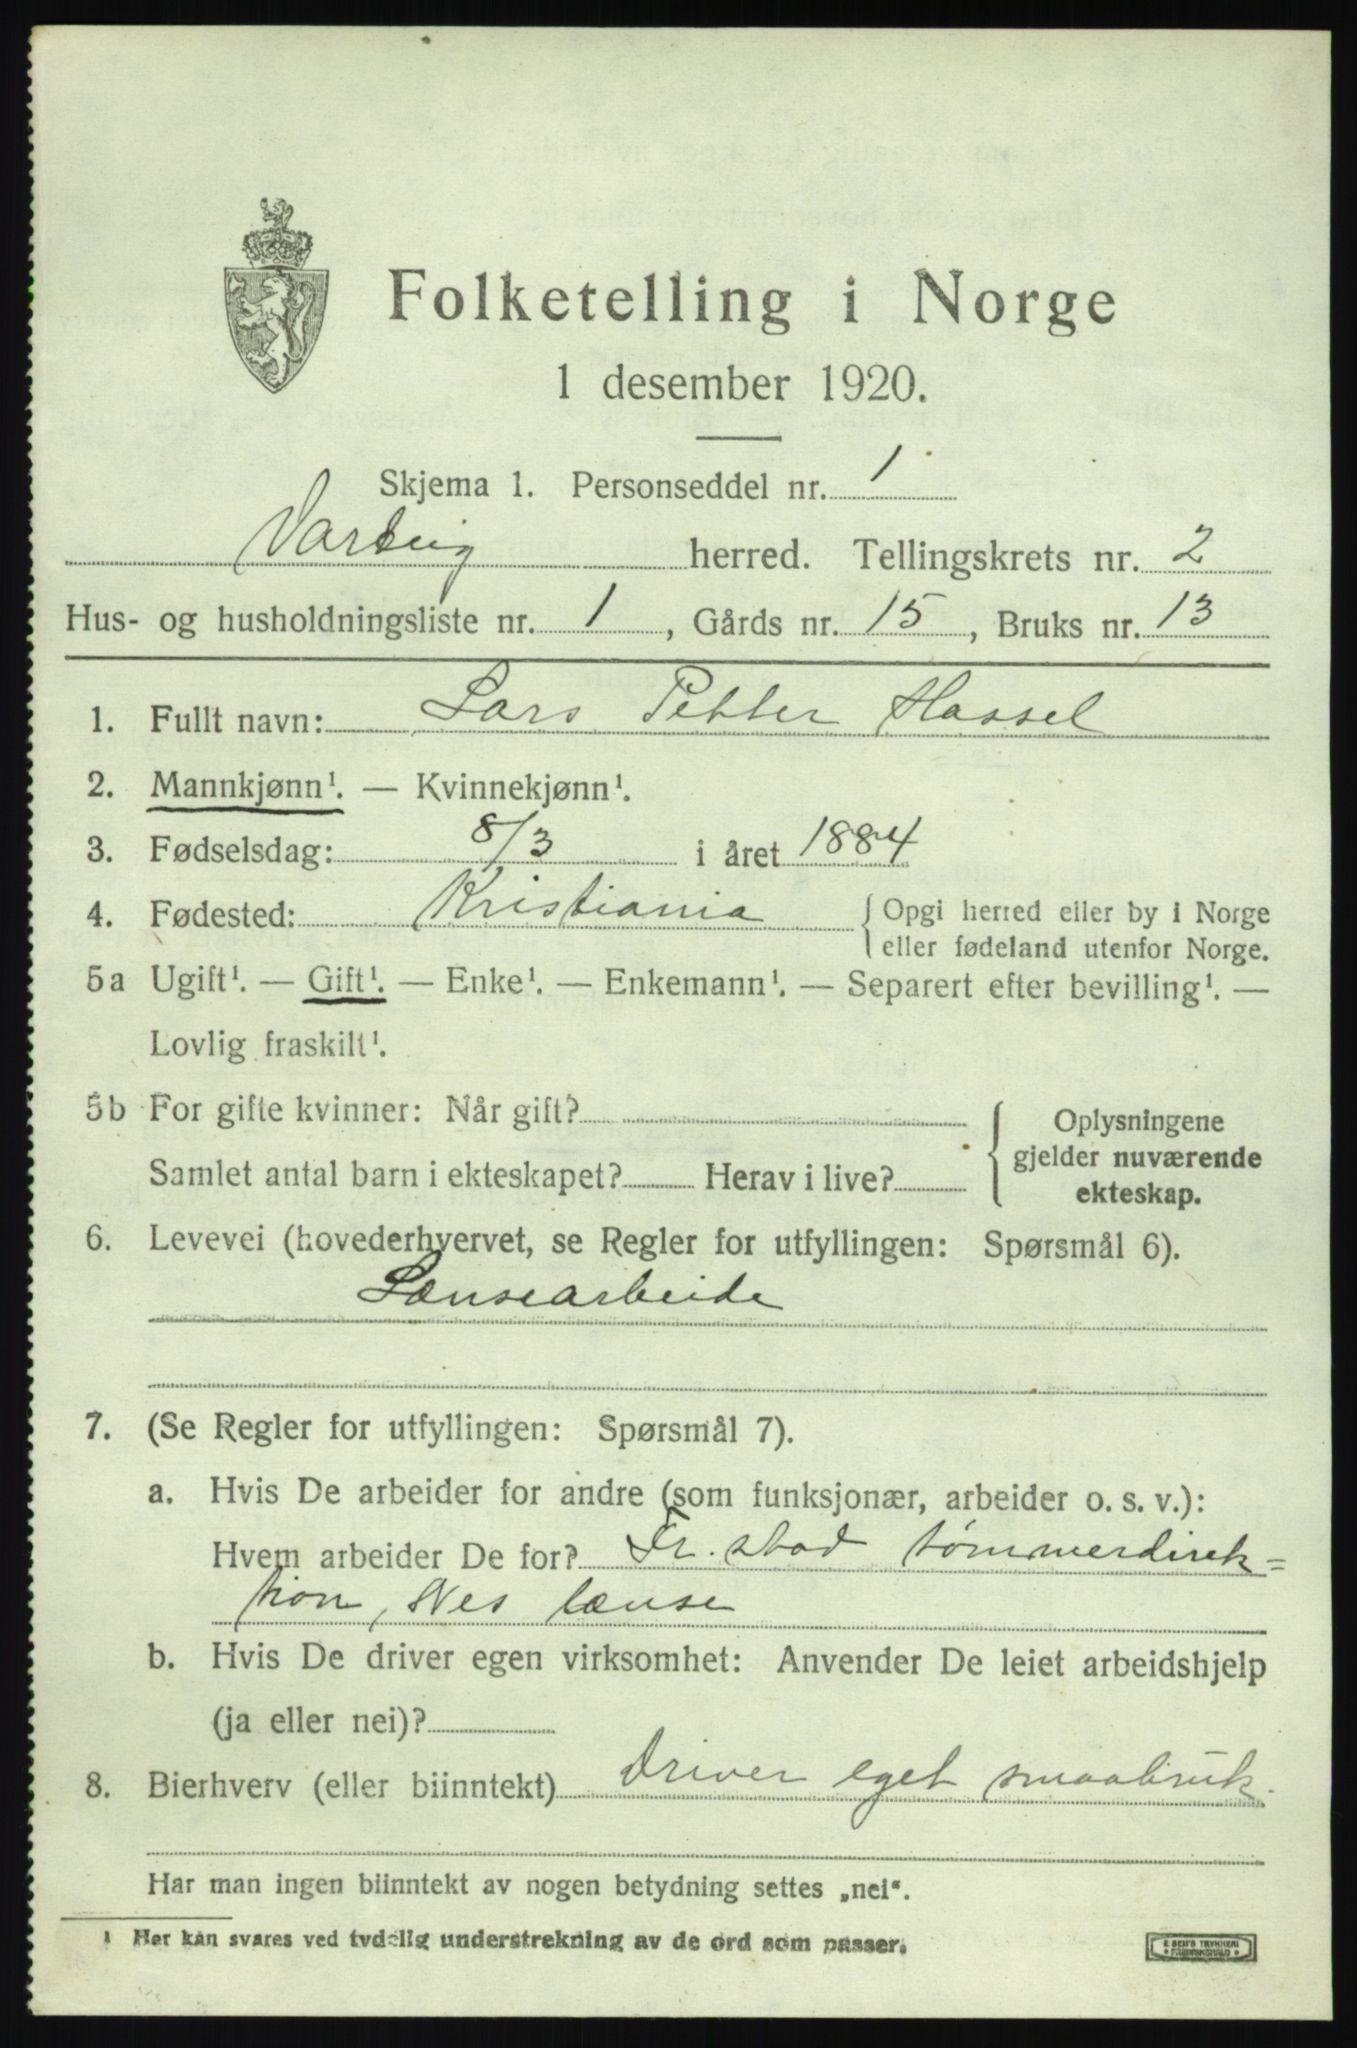 Folketelling i Norge
1 desember 1920.
Skjema 1. Personseddel nr. 1
Varteig herred. Tellingskrets nr. 2
Hus- og husholdningsliste nr. 1, Gårds nr. 15, Bruks nr. 13
1. Fullt navn: Lars Petter Hassel
2. Mannkjønn¹. — Kvinnekjønn¹.
3. Fødselsdag: 8/3 i året 1884
4. Fødested: Kristiania { Opgi herred eller by i Norge
eller fødeland utenfor Norge.
5a Ugift¹. — Gift¹. — Enke¹. — Enkemann¹. — Separert efter bevilling¹. —
Lovlig fraskilt¹.
5b For gifte kvinner: Når gift?
Samlet antal barn i ekteskapet? Herav i live?
Oplysningene
gjelder nuværende
ekteskap.
6. Levevei (hovederhvervet, se Regler for utfyllingen: Spørsmål 6).
Lænsearbeide
7. (Se Regler for utfyllingen: Spørsmål 7).
a. Hvis De arbeider for andre (som funksjonær, arbeider o. s. v.):
Hvem arbeider De for? Fr. stad tømmerdirek=
tion, Nes lænse
b. Hvis De driver egen virksomhet: Anvender De leiet arbeidshjelp
(ja eller nei)?
8. Bierhverv (eller biinntekt) Driver eget smaabruk.
Har man ingen biinntekt av nogen betydning settes „nei“.
¹ Her kan svares ved tydelig understrekning av de ord som passer.